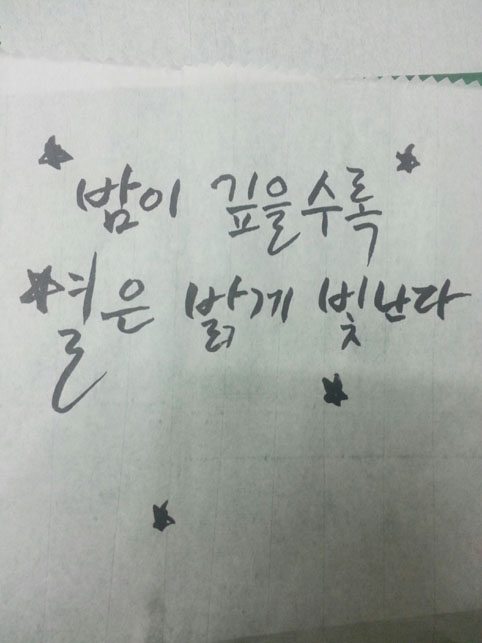 밤이 깊을수록
별은 밝게 빛난다